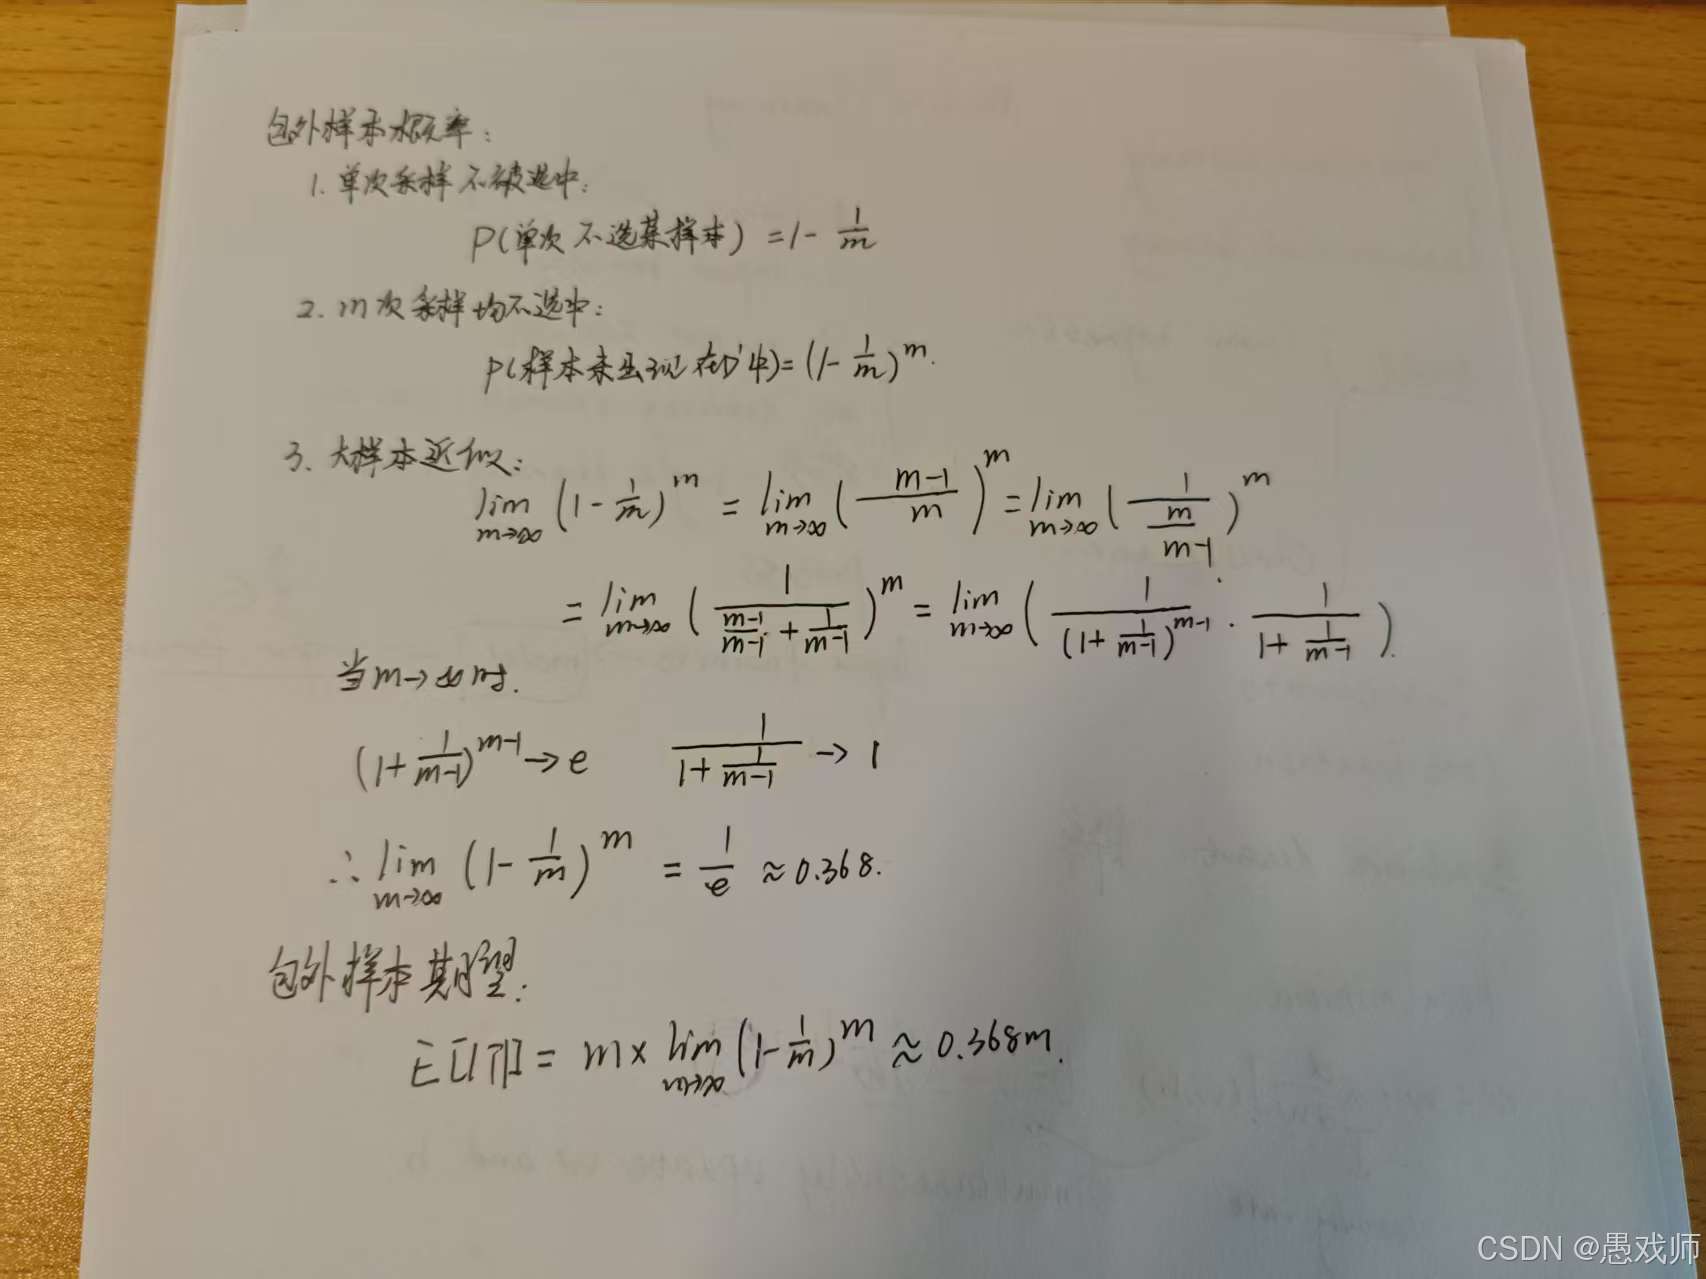 包外样本概率:
1. 单次采样不被选中:
P(单次不选某样本) = 1 - 1/m
2. m次采样均不选中:
P(样本未出现在D'中) = (1 - 1/m)^m.
3. 大样本近似:
lim m→∞ (1 - 1/m)^m = lim m→∞ ((m-1)/m)^m = lim m→∞ (1/(m/(m-1)))^m
= lim m→∞ (1/((m-1)/(m-1) + 1/(m-1)))^m = lim m→∞ (1/(1 + 1/(m-1))^(m-1) · 1/(1 + 1/(m-1))).
当m→∞时.
(1 + 1/(m-1))^(m-1) → e 1/(1 + 1/(m-1)) → 1
∴ lim m→∞ (1 - 1/m)^m = 1/e ≈ 0.368.
包外样本期望:
E[|T|] = m × lim m→∞ (1 - 1/m)^m ≈ 0.368m.
CSDN @愚戏师